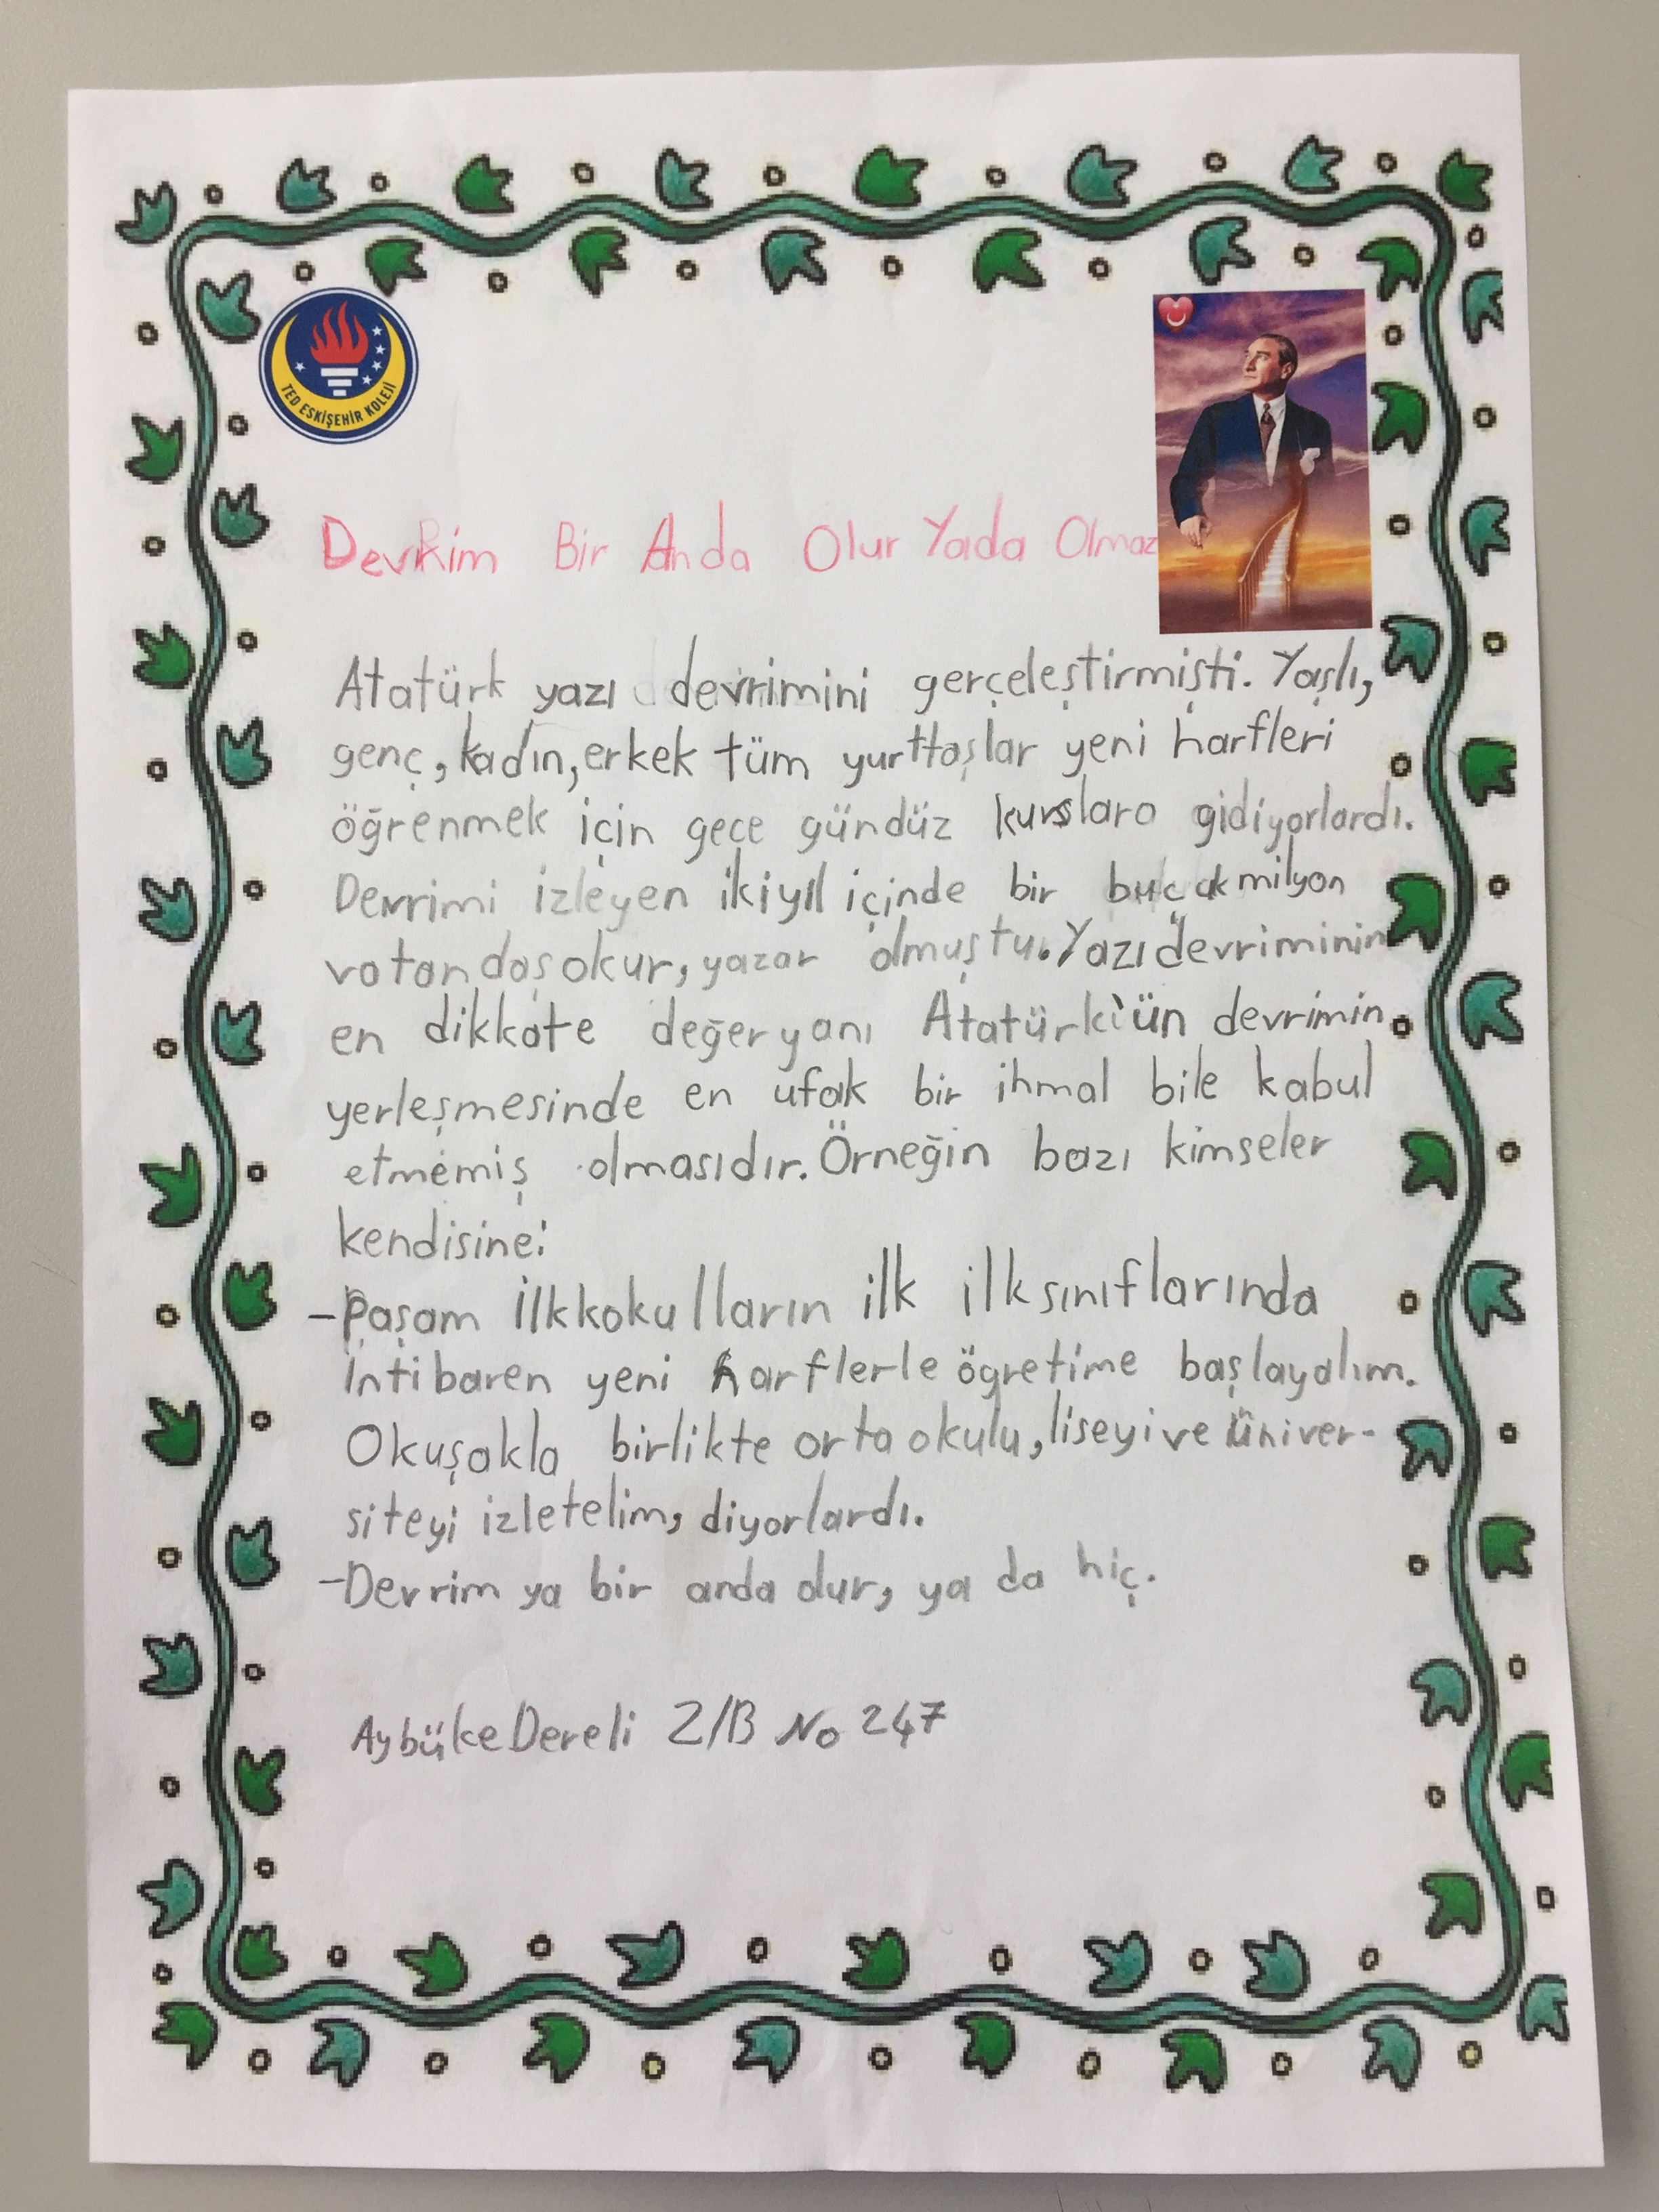 TED ESKİŞEHİR KOLEJİ
Devrim Bir Anda Olur Yada Olmaz
Atatürk yazı devrimini gerçeleştirmişti. Yaşlı,
genç, kadın, erkek tüm yurttaşlar yeni harfleri
öğrenmek için gece gündüz kurslara gidiyorlardı.
Devrimi izleyen iki yıl içinde bir buçuk milyon
vatandaş okur, yazar olmuştu. Yazı devriminin
en dikkate değer yanı Atatürk'ün devrimin
yerleşmesinde en ufak bir ihmal bile kabul
etmemiş olmasıdır. Örneğin bazı kimseler
kendisine:
-Paşam İlkkokulların ilk ilk sınıflarında
İntibaren yeni harflerle ögretime başlayalım.
Okuşakla birlikte orta okulu, liseyi ve üniver-
siteyi izletelim, diyorlardı.
-Devrim ya bir anda olur, ya da hiç.
Aybüke Dereli 2/B No 247